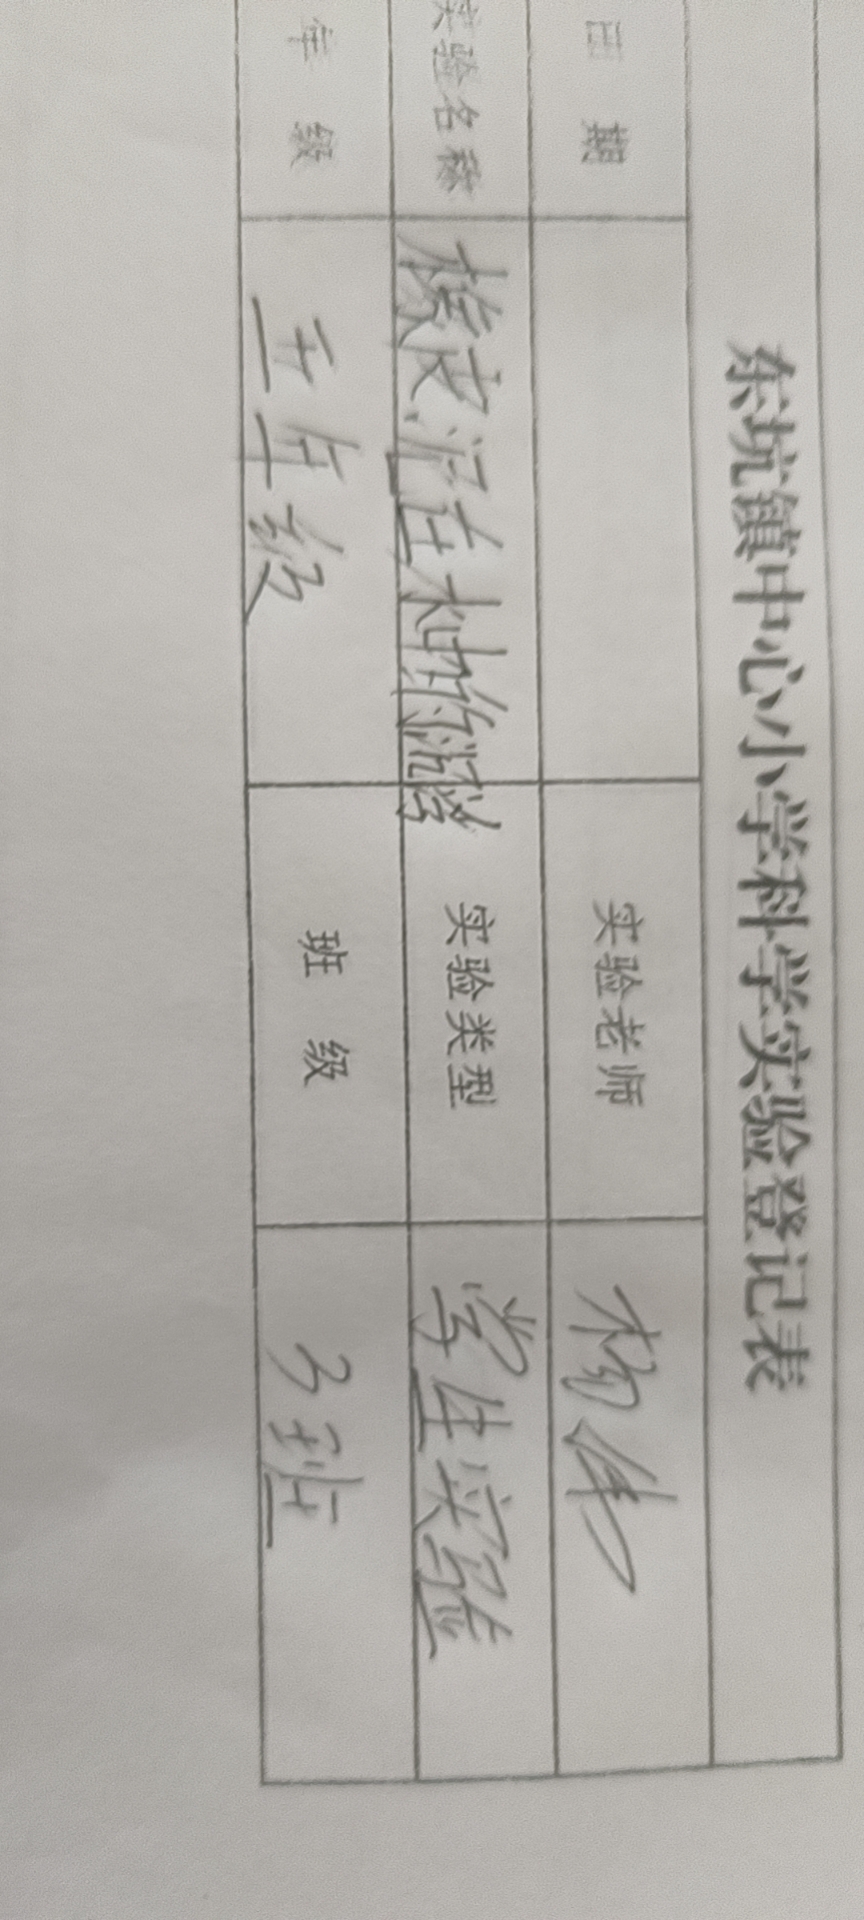 东坑镇中心小学科学实验登记表
日 期 实验老师 杨伟
实验名称 橡皮泥在水中的浮沉 实验类型 学生实验
年 级 五年级 班 级 3班